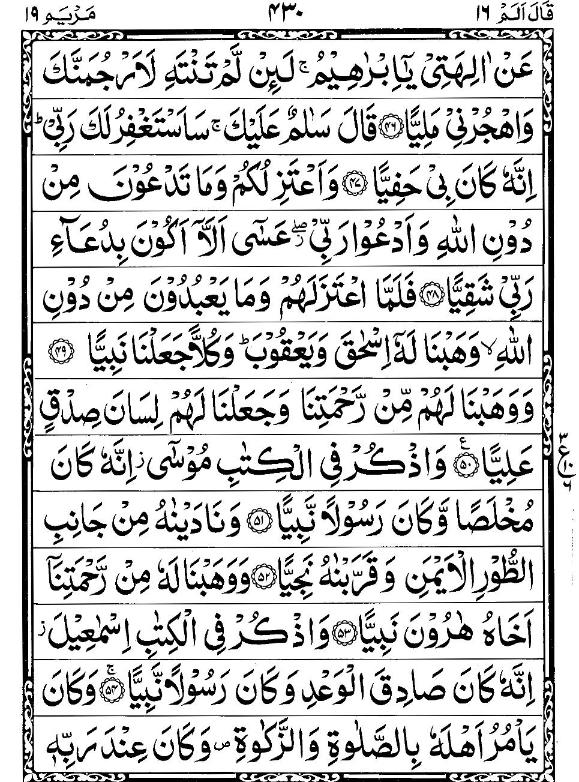 قَالَ اَلَمْ ١٦ ٤٣٠ مَرْيَم ١٩
عَنْ اٰلِهَتِیْ یٰۤاِبْرٰهِیْمُ ۚ لَىِٕنْ لَّمْ تَنْتَهِ لَاَرْجُمَنَّكَ
وَاهْجُرْنِیْ مَلِیًّا ﴿۴۶﴾ قَالَ سَلٰمٌ عَلَیْكَ ۚ سَاَسْتَغْفِرُ لَكَ رَبِّیْ ؕ
اِنَّهٗ كَانَ بِیْ حَفِیًّا ﴿۴۷﴾ وَاَعْتَزِلُكُمْ وَمَا تَدْعُوْنَ مِنْ
دُوْنِ اللّٰهِ وَاَدْعُوْا رَبِّیْ ۖؗ عَسٰۤی اَلَّاۤ اَكُوْنَ بِدُعَآءِ
رَبِّیْ شَقِیًّا ﴿۴۸﴾ فَلَمَّا اعْتَزَلَهُمْ وَمَا یَعْبُدُوْنَ مِنْ دُوْنِ
اللّٰهِ ۙ وَهَبْنَا لَهٗۤ اِسْحٰقَ وَیَعْقُوْبَ ؕ وَكُلًّا جَعَلْنَا نَبِیًّا ﴿۴۹﴾
وَوَهَبْنَا لَهُمْ مِّنْ رَّحْمَتِنَا وَجَعَلْنَا لَهُمْ لِسَانَ صِدْقٍ
عَلِیًّا ﴿۵۰﴾ ع وَاذْكُرْ فِی الْكِتٰبِ مُوْسٰۤی ؗ اِنَّهٗ كَانَ
مُخْلَصًا وَّكَانَ رَسُوْلًا نَّبِیًّا ﴿۵۱﴾ وَنَادَیْنٰهُ مِنْ جَانِبِ
الطُّوْرِ الْاَیْمَنِ وَقَرَّبْنٰهُ نَجِیًّا ﴿۵۲﴾ وَوَهَبْنَا لَهٗ مِنْ رَّحْمَتِنَاۤ
اَخَاهُ هٰرُوْنَ نَبِیًّا ﴿۵۳﴾ وَاذْكُرْ فِی الْكِتٰبِ اِسْمٰعِیْلَ ؗ
اِنَّهٗ كَانَ صَادِقَ الْوَعْدِ وَكَانَ رَسُوْلًا نَّبِیًّا ﴿۵۴﴾ ۚ وَكَانَ
یَاْمُرُ اَهْلَهٗ بِالصَّلٰوةِ وَالزَّكٰوةِ ۪ وَكَانَ عِنْدَ رَبِّهٖ